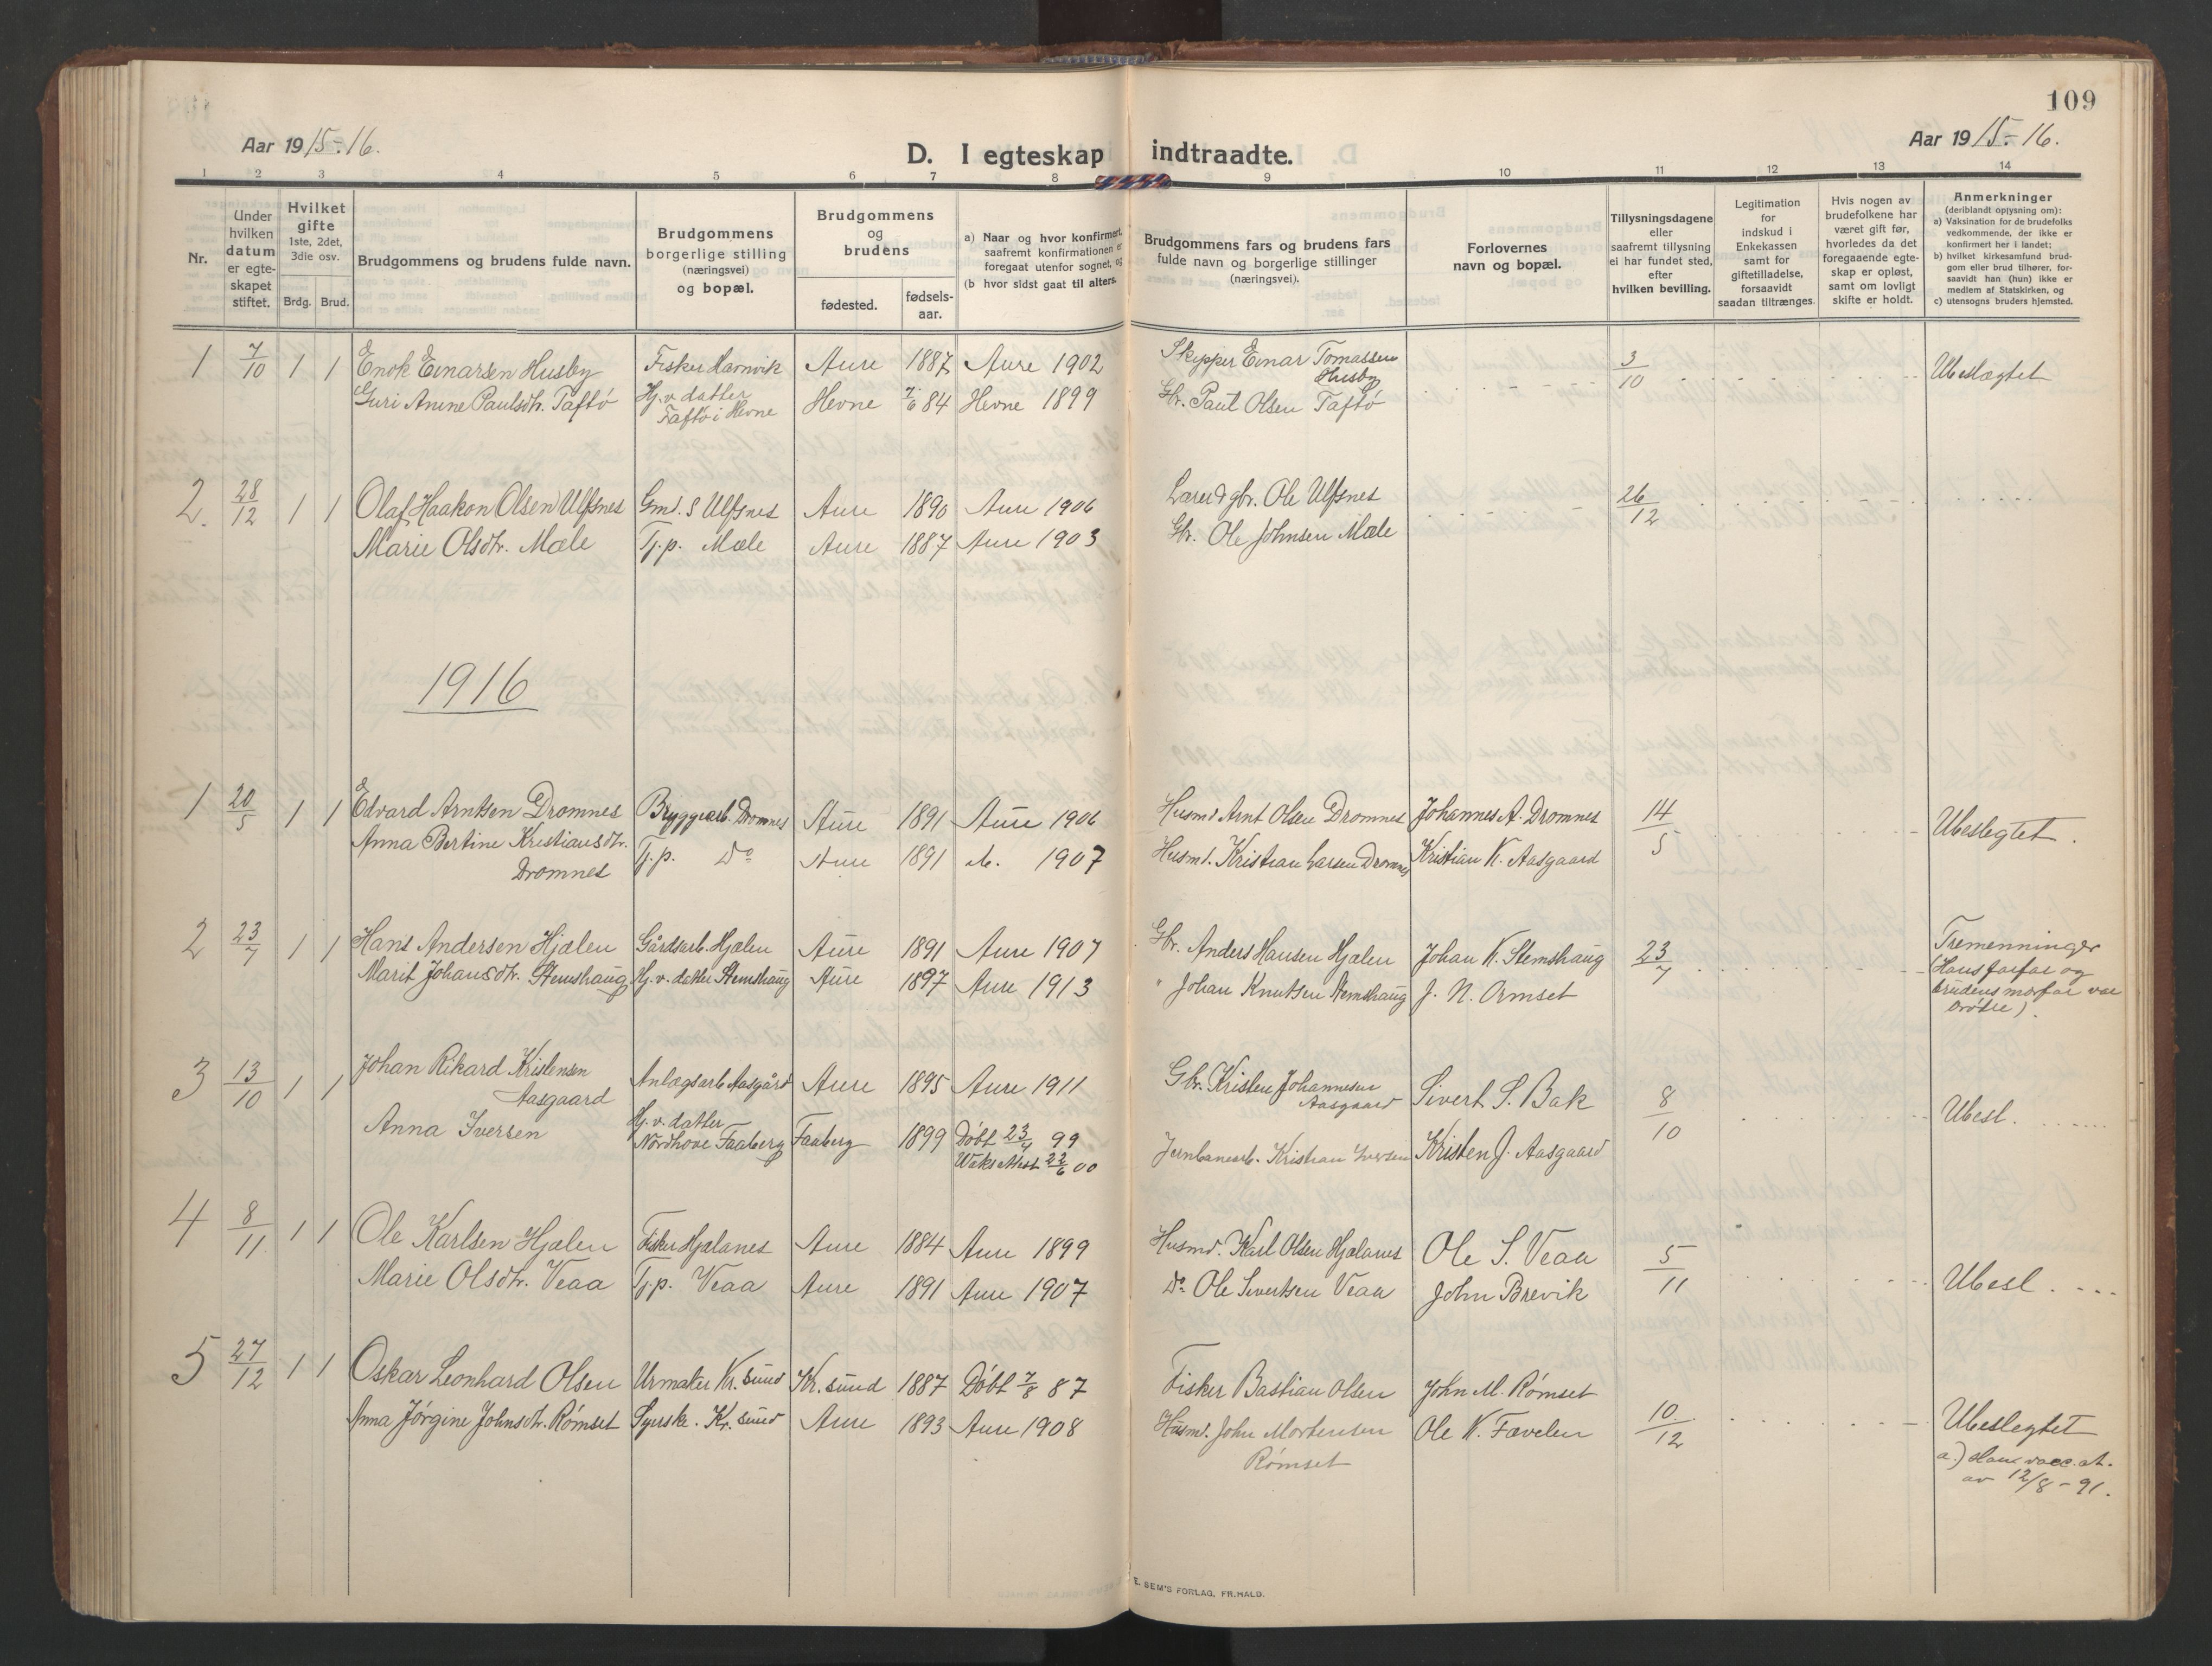 109
Aar 1915-16.
Aar 1915-16.
D. I egteskap indtraadte.
1 2 3 4 5 6 7 8 9 10 11 12 13 14
Nr.
Under hvilken datum er egteskapet stiftet.
Hvilket gifte 1ste, 2det, 3die osv.
Brdg. Brud.
Brudgommens og brudens fulde navn.
Brudgommens borgerlige stilling (næringsvei) og bopæl.
Brudgommens og brudens
fødested.
fødselsaar.
a) Naar og hvor konfirmert, saafremt konfirmationen er foregaat utenfor sognet, og
(b hvor sidst gaat til alters.
Brudgommens fars og brudens fars fulde navn og borgerlige stillinger (næringsvei).
Forlovernes navn og bopæl.
Tillysningsdagene eller saafremt tillysning ei har fundet sted, efter hvilken bevilling.
Legitimation for indskud i Enkekassen samt for giftetilladelse, forsaavidt saadan tiltrænges.
Hvis nogen av brudefolkene har været gift før, hvorledes da det foregaaende egteskap er opløst, samt om lovligt skifte er holdt.
Anmerkninger (deriblandt opjysning om):
a) Vaksination for de brudefolks vedkommende, der ikke er konfirmert her i landet;
b) hvilket kirkesamfund brudgom eller brud tilhører, forsaavidt han (hun) ikke er medlem af Statskirken, og
c) utensogns bruders hjemsted.
1 7/10 1 1 Enok Einarsen Husby Fisker Havnvik Aure 1887 Aure 1902 Skipper Einar Tomassen Husby 3/10 Ubeslægtet
Guri Anine Paulsdtr. Taftø Hj.v. datter Taftø i Hevne Hevne 7/6 84 Hevne 1899 Gbr. Paul Olsen Taftø
2. 28/12 1 1 Olaf Haakon Olsen Ulfsnes Gmd. S Ulfsnes Aure 1890 Aure 1906 Lærer & gbr. Ole Ulfsnes 26/12
Marie Olsdtr. Mæle Tj.p. Mæle Aure 1887 Aure 1903 Gbr. Ole Johnsen Mæle
1916
1 20/5 1 1 Edvard Arntsen Dromnes Bryggearb. Dromnes Aure 1891 Aure 1906 Husmd Arnt Olsen Dromnes Johannes A. Dromnes 14/5 Ubeslegtet.
Anna Bertine Kristiansdtr. Dromnes Tj.p. Do Aure 1891 A. 1907 Husmd. Kristian Larsen Dromnes Kristian K. Aasgaard
2 23/7 1 1 Hans Andersen Hjælen Gårdsarb. Hjælen Aure 1891 Aure 1907 Gbr. Anders Hansen Hjælen Johan K. Stemshaug 23/7 Tremenninger
Marit Johansdtr. Stemshaug Hj.v. datter Stemshaug Aure 1897 Aure 1913 " Johan Knutsen Stemshaug J. N. Ormset (Hans farfar og
brudens morfar var
brødre)
3 13/10 1 1 Johan Rikard Kristensen Aasgaard Anlægsarb Aasgård Aure 1895 Aure 1911 Gbr. Kristen Johannesen Aasgaard Sivert S. Bak 8/10 Ubesl.
Anna Iversen Hj.v. datter Nordhove Faaberg Faaberg 1899 Døbt 23/4 99 Jernbanearb. Kristian Iversen Kristen J. Aasgaard
Vaks Attest 22/6 00
4 8/11 1 1 Ole Karlsen Hjælen Fisker Hjælanes Aure 1884 Aure 1899 Husmd. Karl Olsen Hjælanes Ole S. Veaa 5/11 Ubesl.
Marie Olsdtr. Veaa Tj.p. Veaa Aure 1891 Aure 1907 Do Ole Sivertsen Veaa John Brevik
5 27/12 1 1 Oskar Leonhard Olsen Urmaker Kr. sund Kr. sund 1887 Døbt 7/8 87 Fisker Bastian Olsen John M. Rømset 10/12 Ubeslegtet
Anna Jørgine Johnsdtr. Rømset Syerske. Kr. sund Aure 1893 Aure 1908 Husmd. John Mortensen Rømset Ole K. Fævelen a.) Hans vacc. at.
av 12/8 - 91.
E. SEM'S FORLAG, FR.HALD.